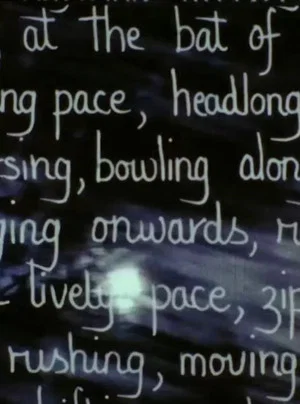 at the bat of
ng pace, headlong
sing, bowling alon
ing onwards, r
lively pace, zip
rushing, moving